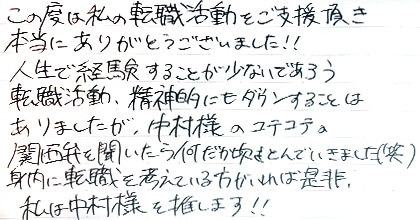 この度は私の転職活動をご支援頂き
本当にありがとうございました!!
人生で経験することが少ないであろう
転職活動、精神的にもダウンすることは
ありましたが、中村様のコテコテの
関西弁を聞いたら何だか頃もとんでいきました(笑)
身内に転職を考えている方がいれば是非、
私は中村様を推します!!